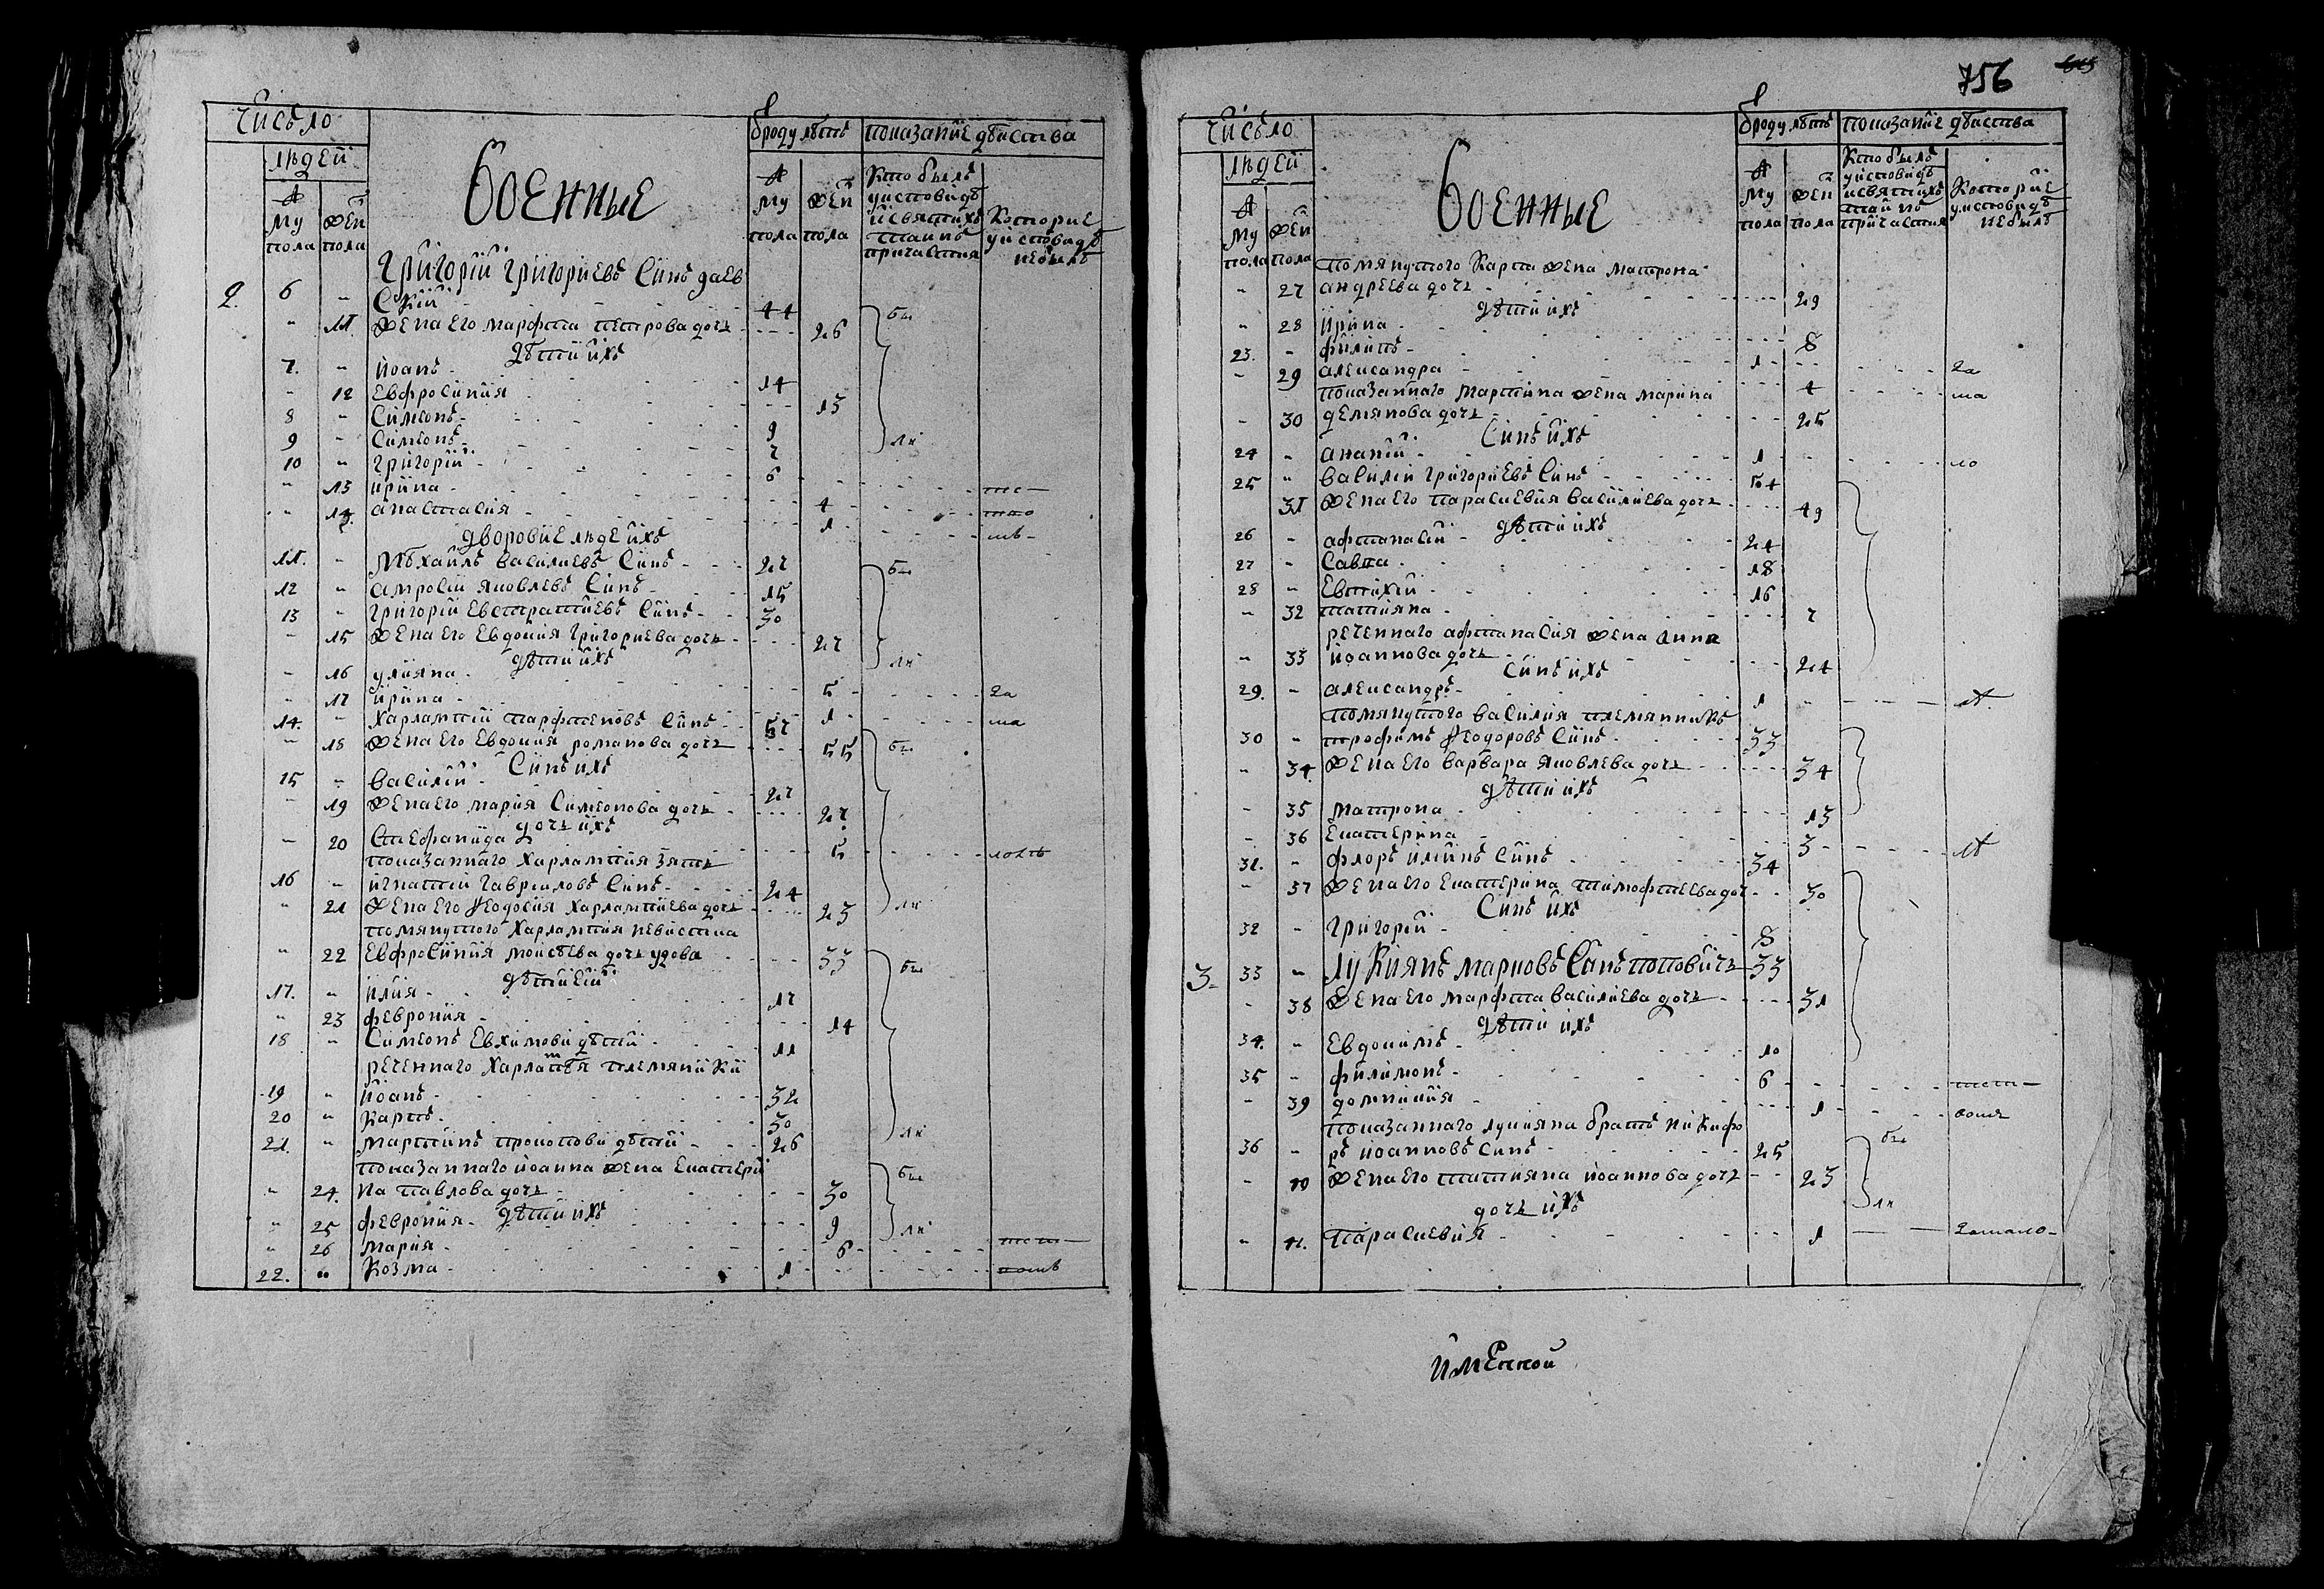 число
людей
му пола
жен пола
военные
в роду лѣтъ
му пола
жен пола
показание дѣиства
кто былъ у исповѣдѣ и святихъ таинъ причастия
которие у исповидѣ небылѣ
2. 6 " Григорїй Григориевъ синъ даев
ский 44 бы
" 11. жена его марфта петрова дочь 26
дѣти ихъ
7. " иоанъ 14
" 12 евфросиния 13
8 " симеонъ 9
9 " симеонъ 7 ли
10 " григорий 6
" 13 ирина 4
" 14. анастасия 1
дворовие люде ихъ
11. " михаилъ василиевъ синъ 27 бы
12 " амросий яковлевъ синъ 15
13 " григорий евстратиевъ синъ 30
" 15 жена его евдокия григориева дочь 27
дѣти ихъ ли
" 16 улияна 5 2а
" 17 ирина 1 ма
14. " харлампий парфтеновъ синъ 57
" 18 жена его евдокия романова дочь 55 бы
синъ ихъ
15 " василий 27
" 19 жена его мария симеонова дочь 27
дочь ихъ
" 20 стефанида 5
показаннаго харлампия зять
16 " игнатий гавриловъ синъ 24
" 21 жена его ѳеодосия харлампиева дочь 23 ли
помянутого харлампия невистка
" 22 евфросиния моисѣева дочь удова 33 бы
дѣти ей
17. " илия 17
" 23 феврония 14
18 " симеонъ евхимови дѣти 11
реченнаго харлампия племяники
19 " иоанъ 32
20 " карпъ 30
21. " мартинъ прокопови дѣти 26 ли
показаннаго иоанна жена екатери
" 24. на павлова дочь 30 бы
дѣти ихъ
" 25 феврония 9 ли
" 26 мария 6
22. " козма 1
756
число
людей
му пола
жен пола
военные
в роду лѣтъ
му пола
жен пола
показание дѣиства
кто былъ у исповидѣ и святихъ таинъ причастия
которие у исповидѣ небылъ
помянутого карпа жена матрона
" 27 андреева дочь 29
дѣти ихъ
" 28 ирина 8
23. " филипъ 1 2а
" 29 александра 4 ма
показаннаго мартина жена марина
" 30 демянова дочь 25
синъ ихъ
24 " ананий 1 ло
25 " василий григориевъ синъ 54
31 жена его параскевия василиева дочь 49
дѣти ихъ
26 " афтанасий 24
27 " савва 18
28 " евтихий 16
" 32 татияна 7
реченнаго афтанасия жена анна
" 33 иоаннова дочь 24
синъ ихъ
29. " александръ 1
помянутого василия племянникъ
30 " трофимъ ѳеодоровъ синъ 33
" 34. жена его варвара яковлева дочь 34
дѣти ихъ
" 35 матрона 13
" 36 екатерина 3
31. " флоръ илиинъ синъ 34
" 37 жена его екатерина тимофтеева доч 30
синъ ихъ
32 " григорий 8
3. 33 " лукиянъ марковъ синъ поповичъ 33
" 38 жена его марфта василиева дочь 31
дѣти ихъ
34. " евдокимъ 10
35 " филимонъ 6
" 39 домникия 1
показаннаго лукияна братъ никифо
36 " ръ иоанновъ синъ 25 бы
" 40 жена его татияна иоаннова дочь 23
дочь ихъ ли
" 41. параскевия 1
именной